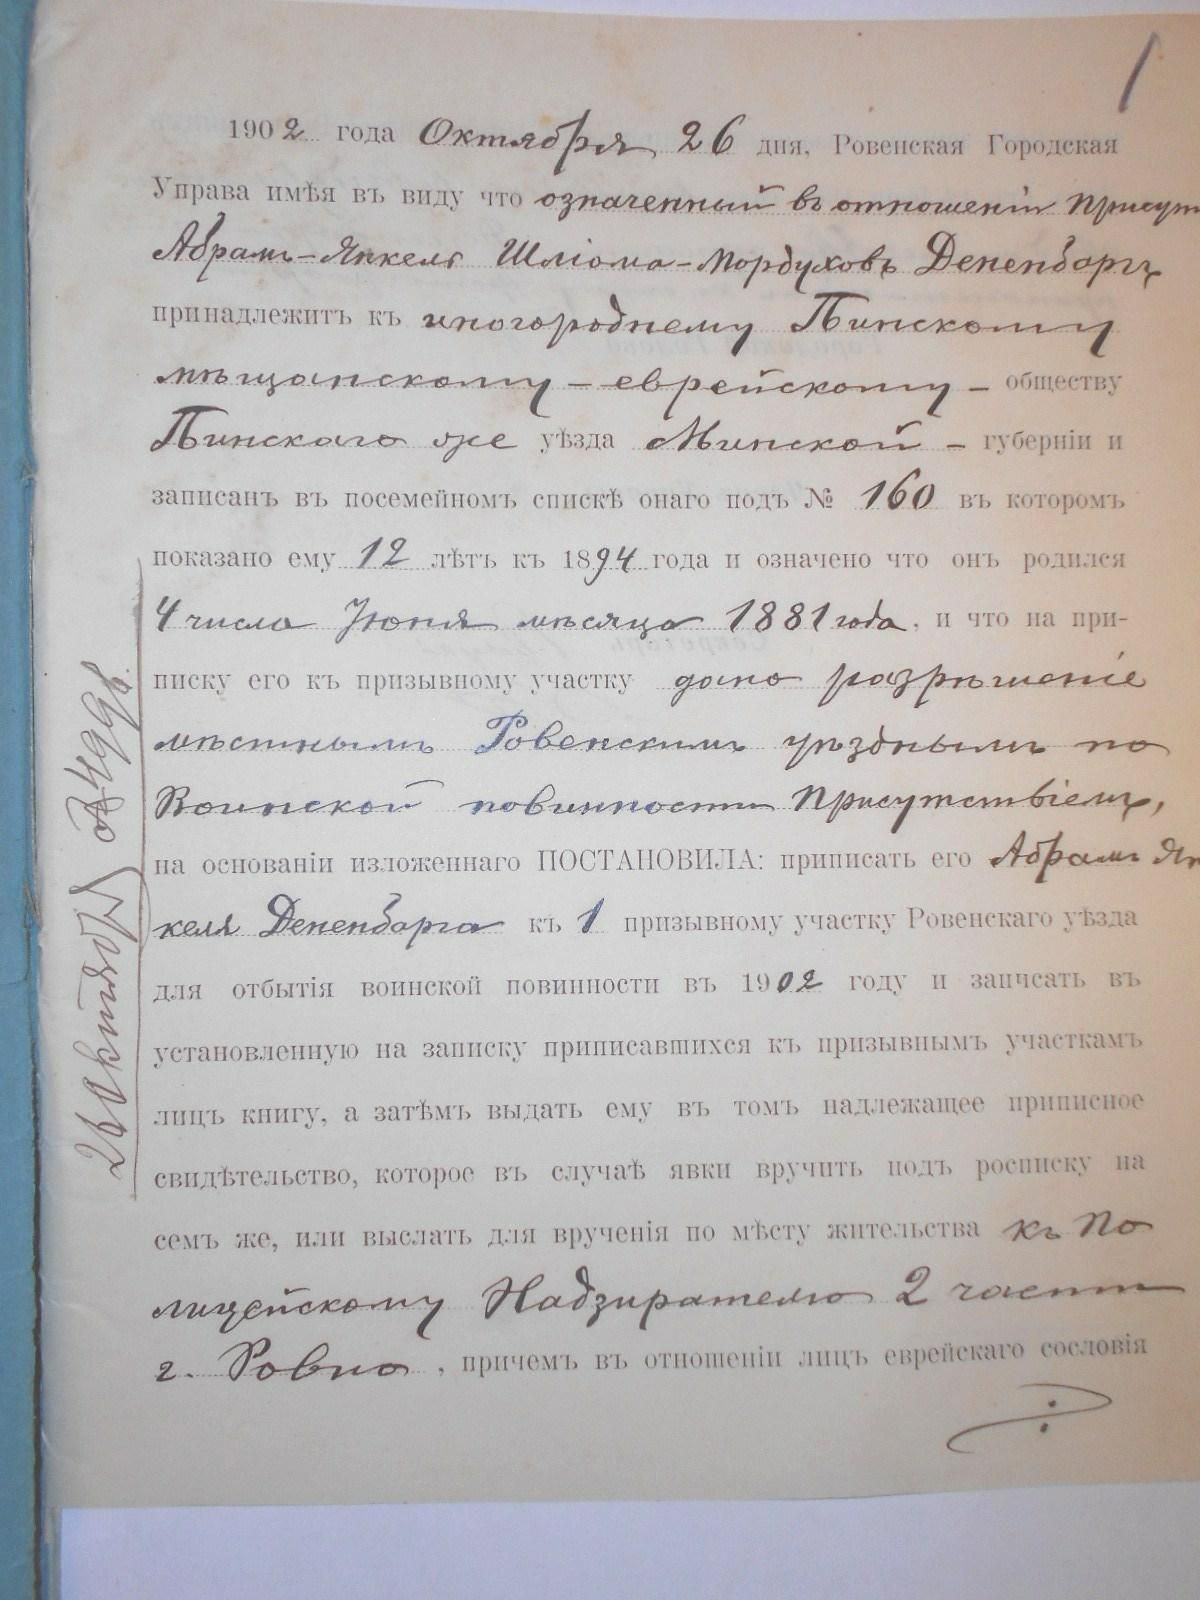 1
1902 года Октября 26 дня, Ровенская Городская
Управа имѣя въ виду что означенный въ отношеніи Присут
Абрамъ-Янкель Шліома-Мордуховъ Дененбаргъ
принадлежитъ къ иногороднему Пинскому
мѣщанскому - еврейскому - обществу
Пинскаго же уѣзда Минской - губерніи и
записанъ въ посемейномъ спискѣ онаго подъ № 160 въ которомъ
показано ему 12 лѣтъ къ 1894 года и означено что онъ родился
4 числа Июня мѣсяца 1881 года, и что на при-
писку его къ призывному участку дано разрѣшеніе
мѣстнымъ Ровенскимъ уѣзднымъ по
Воинской повинности Присутствіемъ,
на основаніи изложеннаго ПОСТАНОВИЛА: приписать его Абрамъ Ян
келя Дененбарга къ 1 призывному участку Ровенскаго уѣзда
для отбытія воинской повинности въ 1902 году и записать въ
установленную на записку приписавшихся къ призывнымъ участкамъ
лицъ книгу, а затѣмъ выдать ему въ томъ надлежащее приписное
свидѣтельство, которое въ случаѣ явки вручить подъ росписку на
семъ же, или выслать для врученія по мѣсту жительства къ По
лицейскому Надзирателю 2 части
г. Ровно, причемъ въ отношеніи лицъ еврейскаго сословія
26 Октября